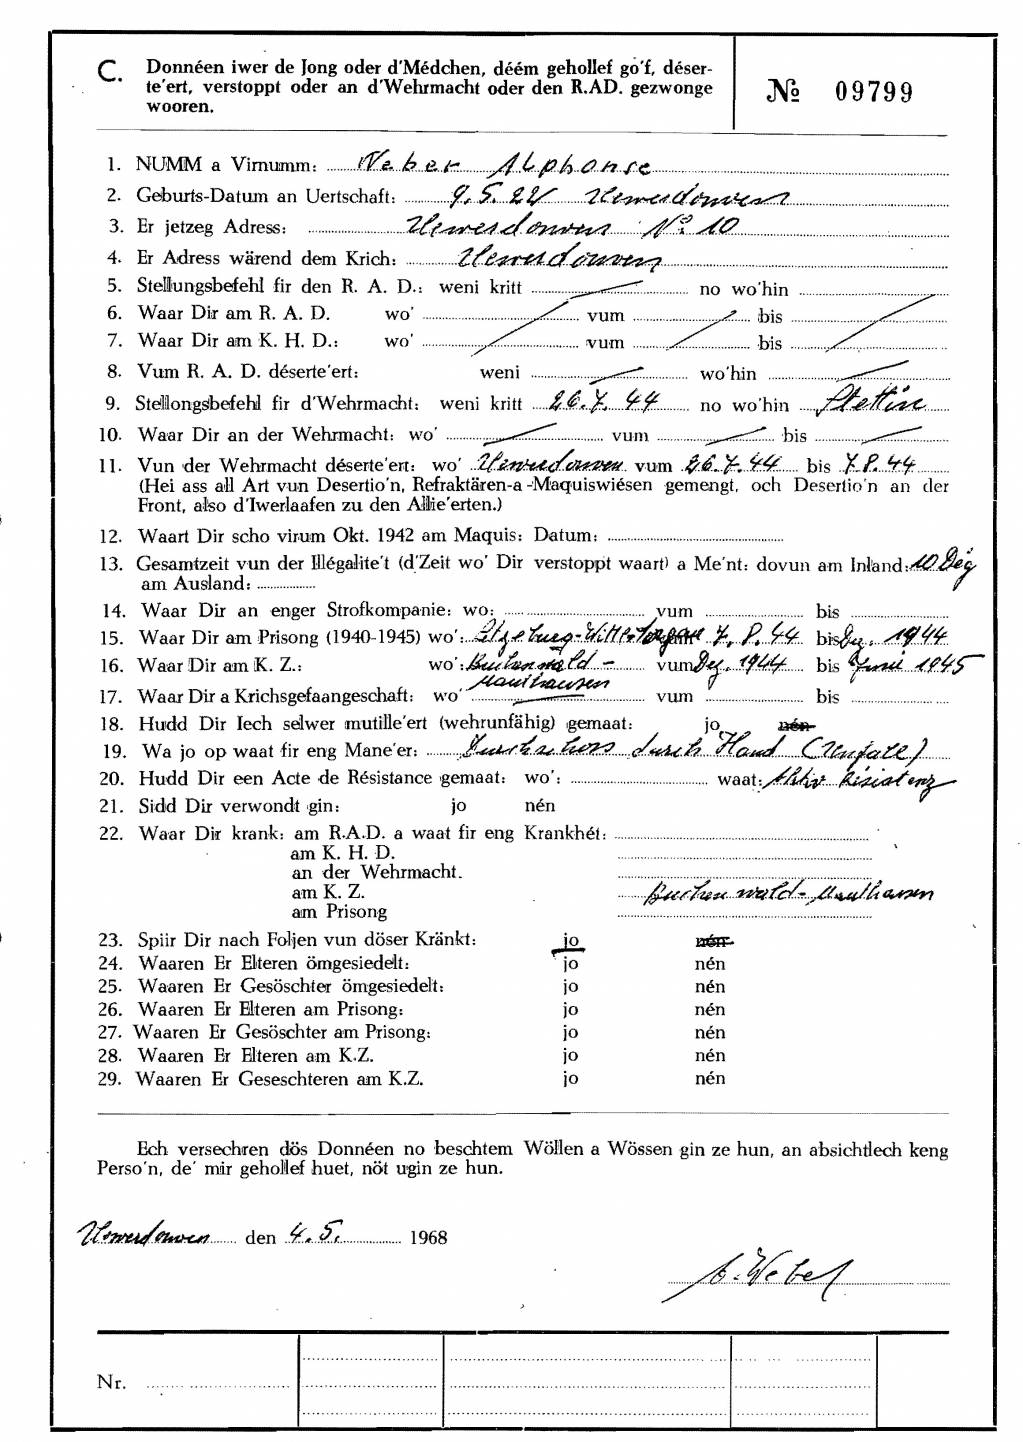 C. Donnéen iwer de Jong oder d'Médchen, déém gehollef go'f, déser-
te'ert, verstoppt oder an d'Wehrmacht oder den R.AD. gezwonge
wooren.
№ 09799
1. NUMM a Virnumm: Weber Alphonse
2. Geburts-Datum an Uertschaft: 9.5.22 Uewerdonven
3. Er jetzeg Adress: Uewerdonven No 10
4. Er Adress wärend dem Krich: Uewerdonven
5. Stellungsbefehl fir den R. A. D.: weni kritt no wo'hin
6. Waar Dir am R. A. D. wo' vum bis
7. Waar Dir am K. H. D.: wo' vum bis
8. Vum R. A. D. déserte'ert: weni wo'hin
9. Stellongsbefehl fir d'Wehrmacht: weni kritt 26.7.44 no wo'hin Stettin
10. Waar Dir an der Wehrmacht: wo' vum bis
11. Vun der Wehrmacht déserte'ert: wo' Uewerdonven vum 26.7.44 bis 7.8.44
(Hei ass all Art vun Desertio'n, Refraktären-a-Maquiswiésen gemengt, och Desertio'n an der
Front, also d'Iwerlaafen zu den Allie'erten.)
12. Waart Dir scho virum Okt. 1942 am Maquis: Datum:
13. Gesamtzeit vun der Illégalite't (d'Zeit wo' Dir verstoppt waart) a Me'nt: dovun am Inland: 10 Deg
am Ausland:
14. Waar Dir an enger Strofkompanie: wo: vum bis
15. Waar Dir am Prisong (1940-1945) wo': vum 7.8.44 bis Dez. 1944
16. Waar Dir am K. Z.: wo': Buchenwald - vum Dez. 1944 bis Juni 1945
Mauthausen
17. Waar Dir a Krichsgefaangeschaft: wo' vum bis
18. Hudd Dir Iech selwer mutille'ert (wehrunfähig) gemaat: jo nén
19. Wa jo op waat fir eng Mane'er: Durchschoss durch Hand (Unfall)
20. Hudd Dir een Acte de Résistance gemaat: wo': waat: Aktiv Resistenz
21. Sidd Dir verwondt gin: jo nén
22. Waar Dir krank: am R.A.D. a waat fir eng Krankhét:
am K. H. D.
an der Wehrmacht.
am K. Z. Buchenwald - Mauthausen
am Prisong
23. Spiir Dir nach Foljen vun döser Kränkt: jo nén
24. Waaren Er Elteren ömgesiedelt: jo nén
25. Waaren Er Gesöschter ömgesiedelt: jo nén
26. Waaren Er Elteren am Prisong: jo nén
27. Waaren Er Gesöschter am Prisong: jo nén
28. Waaren Er Elteren am K.Z. jo nén
29. Waaren Er Geseschteren am K.Z. jo nén
Ech versechren dös Donnéen no beschtem Wöllen a Wössen gin ze hun, an absichtlech keng
Perso'n, de' mir gehollef huet, nöt ugin ze hun.
Uewerdonven den 4.5. 1968
A. Weber
Nr.